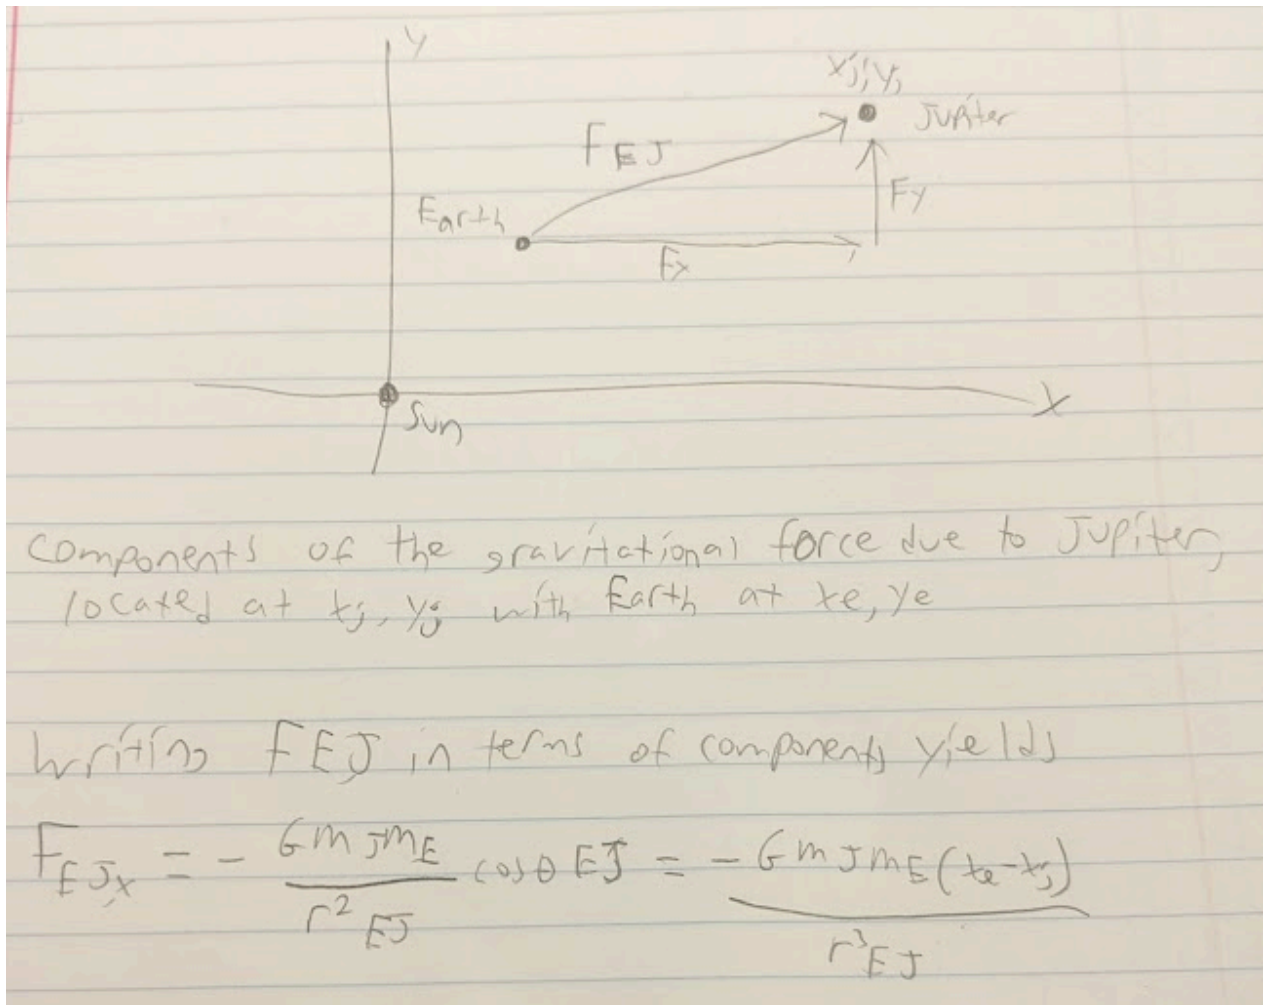 y
xj, yj
Jupiter
FEJ
Fy
Earth
Fx
Sun
X
Components of the gravitational force due to Jupiter,
located at xj, yj with Earth at xe, ye
Writing FEJ in terms of components yields
F_{EJ,x} = - \frac{G m_J m_E}{r^2_{EJ}} cosθ EJ = - \frac{G m_J m_E (x_e - x_j)}{r^3_{EJ}}